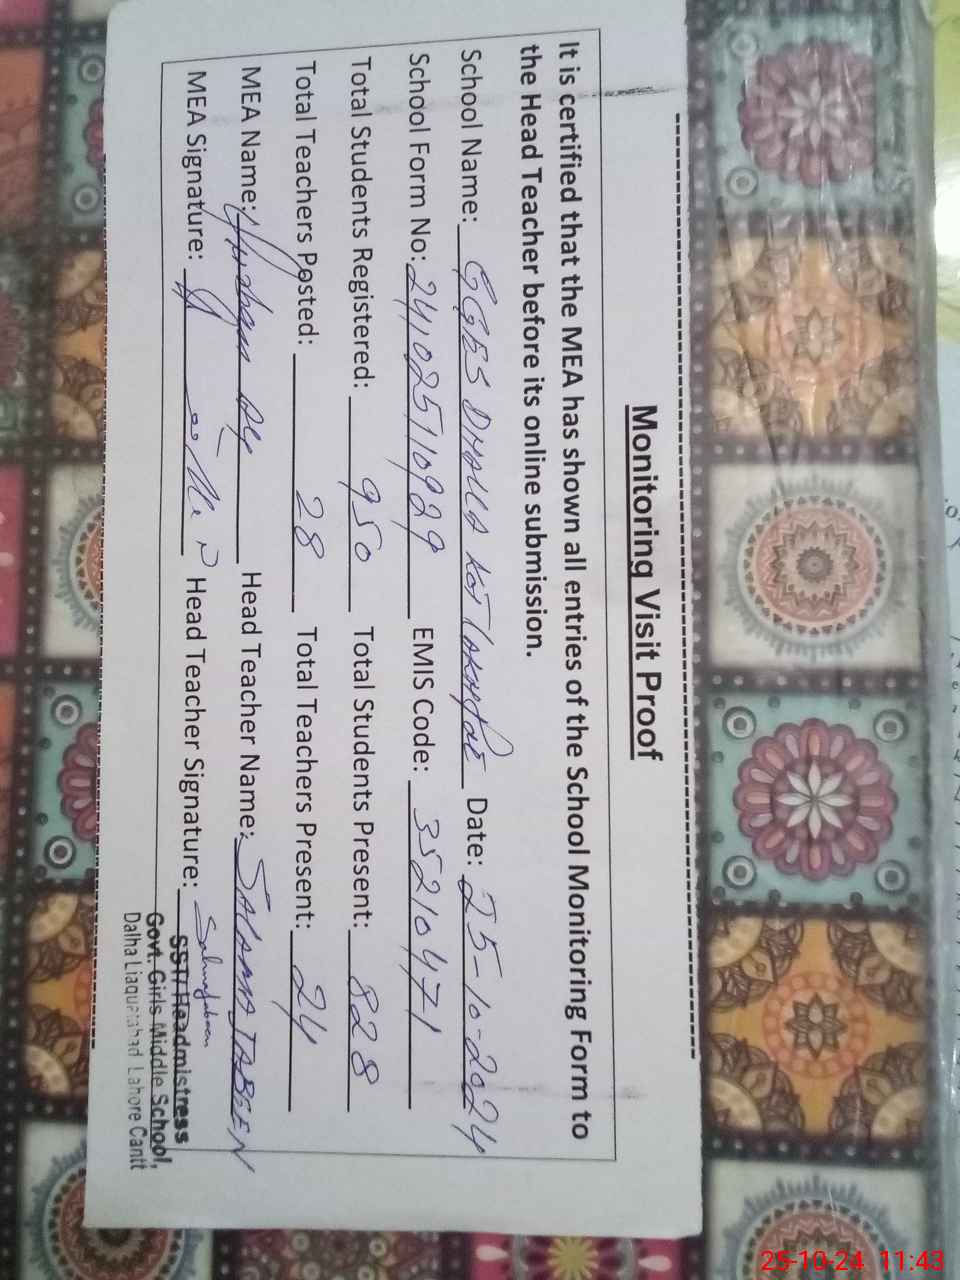 Monitoring Visit Proof
It is certified that the MEA has shown all entries of the School Monitoring Form to
the Head Teacher before its online submission.
School Name: GGES DHALLA KOT Lakhpat Date: 25-10-2024
School Form No: 241025110929 EMIS Code: 35210471
Total Students Registered: 950 Total Students Present: 828
Total Teachers Posted: 28 Total Teachers Present: 24
MEA Name: Head Teacher Name: SALAMA JABEEN
MEA Signature: Head Teacher Signature:
SST/Headmistress
Govt. Girls Middle School,
Dalha Liaquatabad Lahore Cantt
25-10-24 11:43